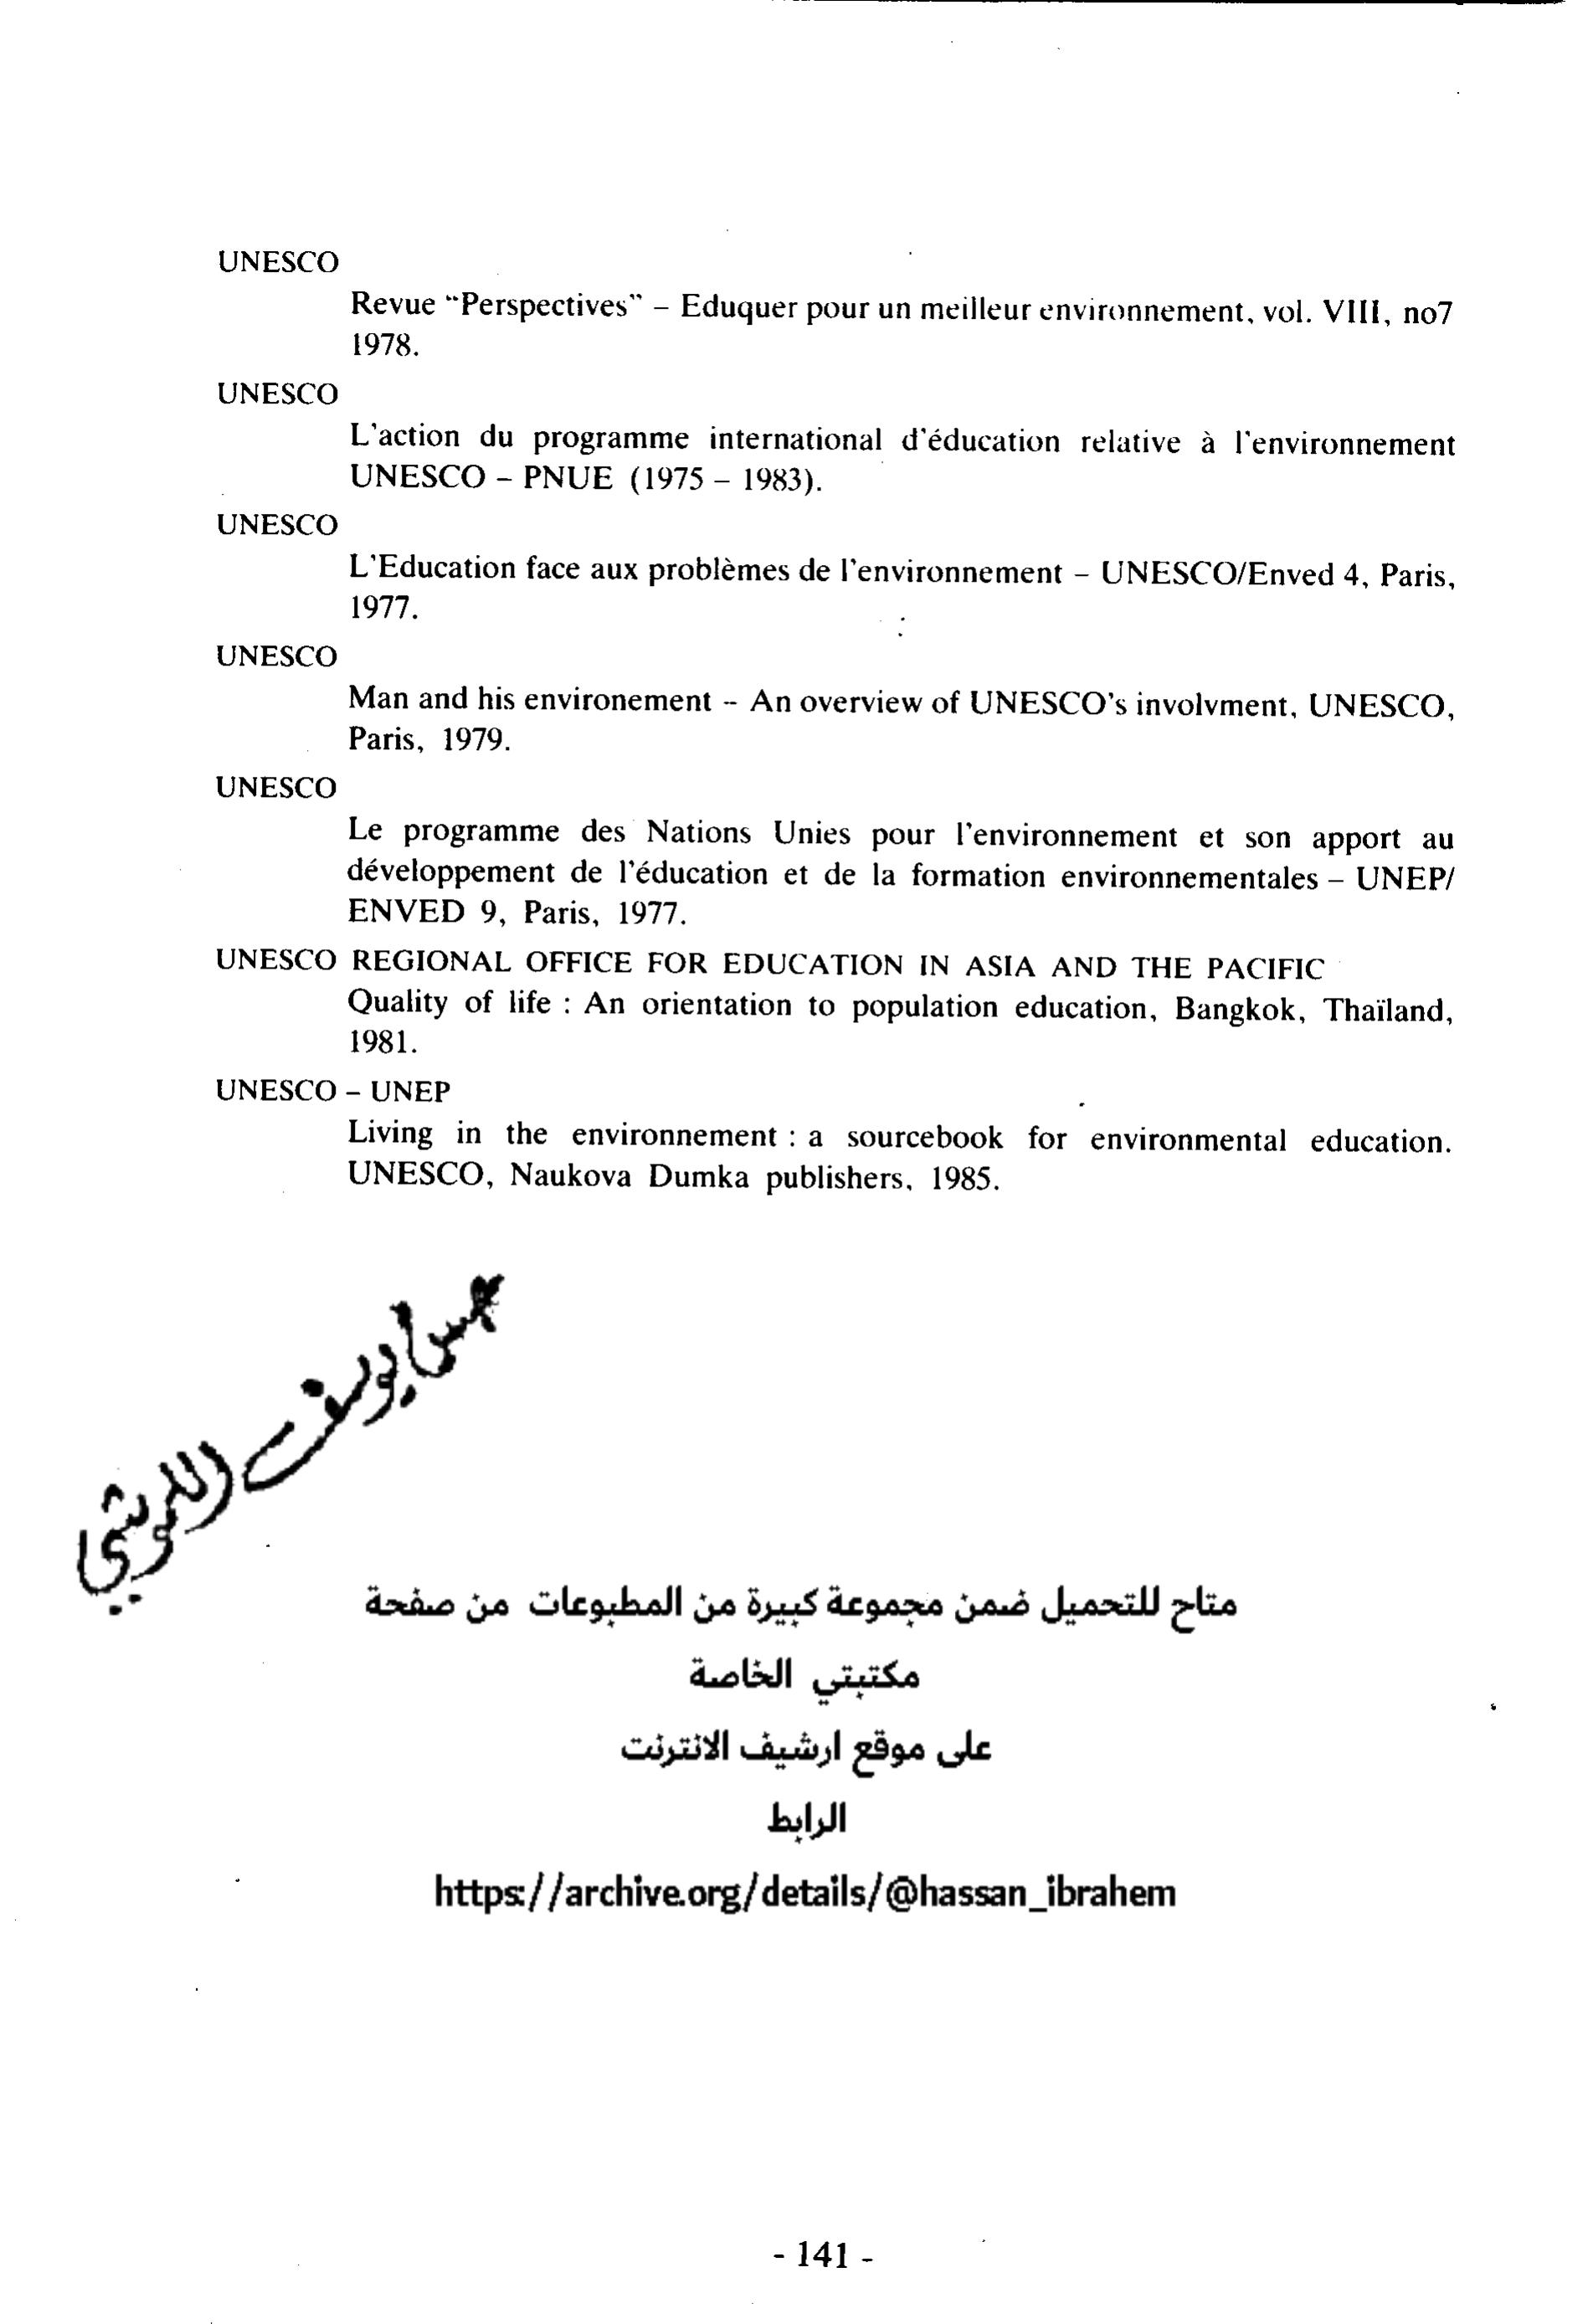 UNESCO
Revue "Perspectives" – Eduquer pour un meilleur environnement, vol. VIII, no7
1978.
UNESCO
L'action du programme international d'éducation relative à l'environnement
UNESCO – PNUE (1975 – 1983).
UNESCO
L'Education face aux problèmes de l'environnement – UNESCO/Enved 4, Paris,
1977.
UNESCO
Man and his environement -- An overview of UNESCO's involvment, UNESCO,
Paris, 1979.
UNESCO
Le programme des Nations Unies pour l'environnement et son apport au
développement de l'éducation et de la formation environnementales – UNEP/
ENVED 9, Paris, 1977.
UNESCO REGIONAL OFFICE FOR EDUCATION IN ASIA AND THE PACIFIC
Quality of life : An orientation to population education, Bangkok, Thaïland,
1981.
UNESCO – UNEP
Living in the environnement : a sourcebook for environmental education.
UNESCO, Naukova Dumka publishers, 1985.
متاح للتحميل ضمن مجموعة كبيرة من المطبوعات من صفحة
مكتبتي الخاصة
على موقع ارشيف الانترنت
الرابط
https://archive.org/details/@hassan_ibrahem
- 141 -